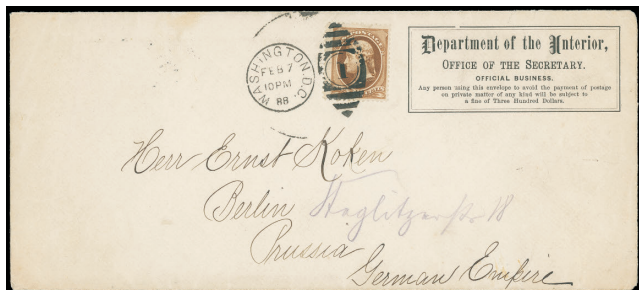 WASHINGTON, D.C.
FEB 7
10PM
88
POSTAGE
1
Department of the Interior,
OFFICE OF THE SECRETARY.
OFFICIAL BUSINESS.
Any person using this envelope to avoid the payment of postage
on private matter of any kind will be subject to
a fine of Three Hundred Dollars.
Herr Ernst Koken
Berlin Steglitzerstr 18
Prussia
German Empire